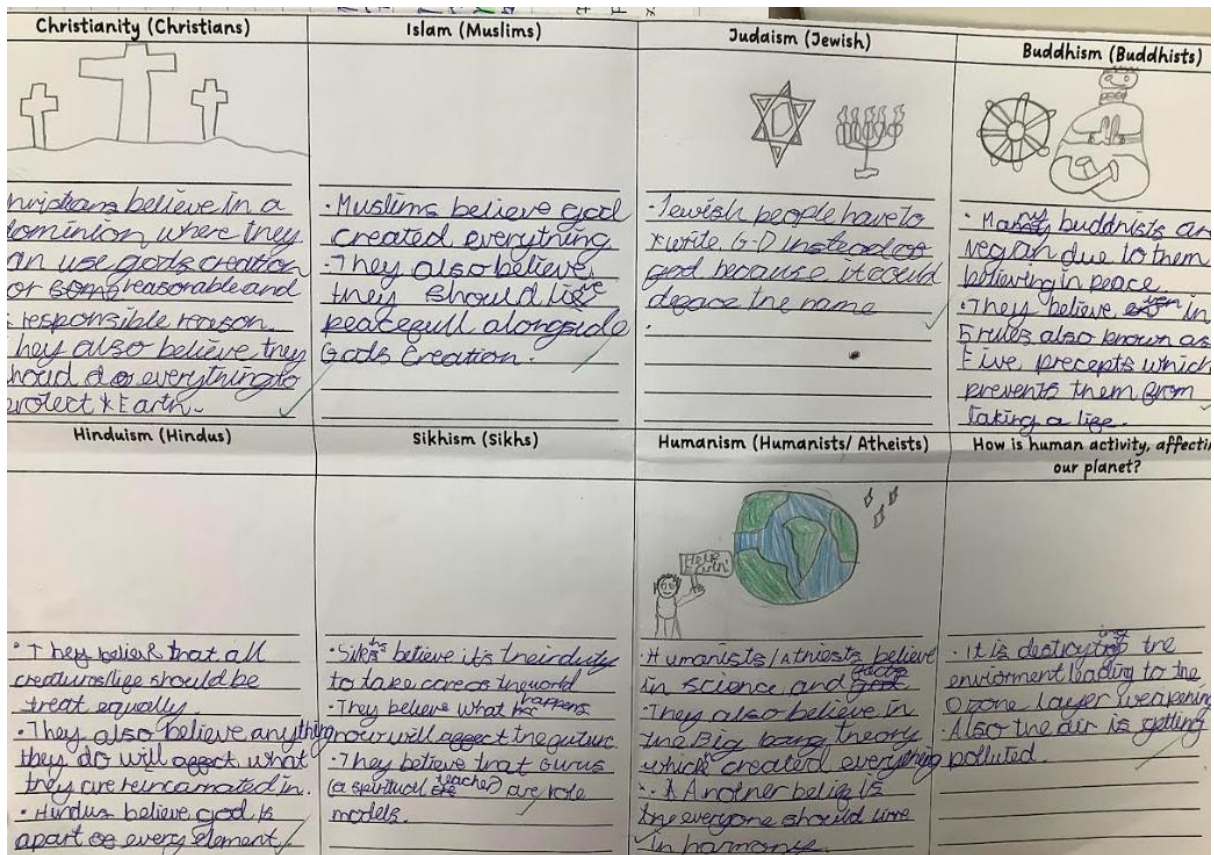 Christianity (Christians)
hristians believe in a
dominion where they
an use gods creation
or some reasonable and
responsible reason.
hey also believe they
hould do everything to
protect Earth.
Islam (Muslims)
· Muslims believe god
created everything
· They also believe
they should live
peacefull alongside
Gods Creation.
Judaism (Jewish)
· Jewish people have to
write G-D instead of
god because it could
deface the name
Buddhism (Buddhists)
· Many buddnists are
vegan due to them
believing in peace.
· They believe in
5 rules also known as
Five precepts which
prevents them from
taking a life.
Hinduism (Hindus)
· They belief that all
creatures/life should be
treat equally.
· They also believe anything
they do will affect what
they are reincarnated in.
· Hindus believe god is
apart of every element
Sikhism (Sikhs)
· Sikhs believe it's their duty
to take care of the world
· They believe what happens
now will affect the future
· They believe that Gurus
(a spiritual teacher) are role
models.
Humanism (Humanists/ Atheists)
Help Earth!
· Humanists/Athiests believe
in science and facts
· They also believe in
the Big bang theory
which created everything
· Another belief is
the everyone should live
in harmony.
How is human activity, affectin
our planet?
· It is destroying the
enviorment leading to the
ozone layer weakening
· Also the air is getting
polluted.